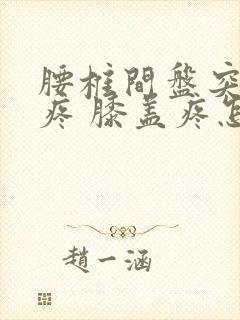 腰柱間盤突
疼 膝盖疼怎
趙一涵